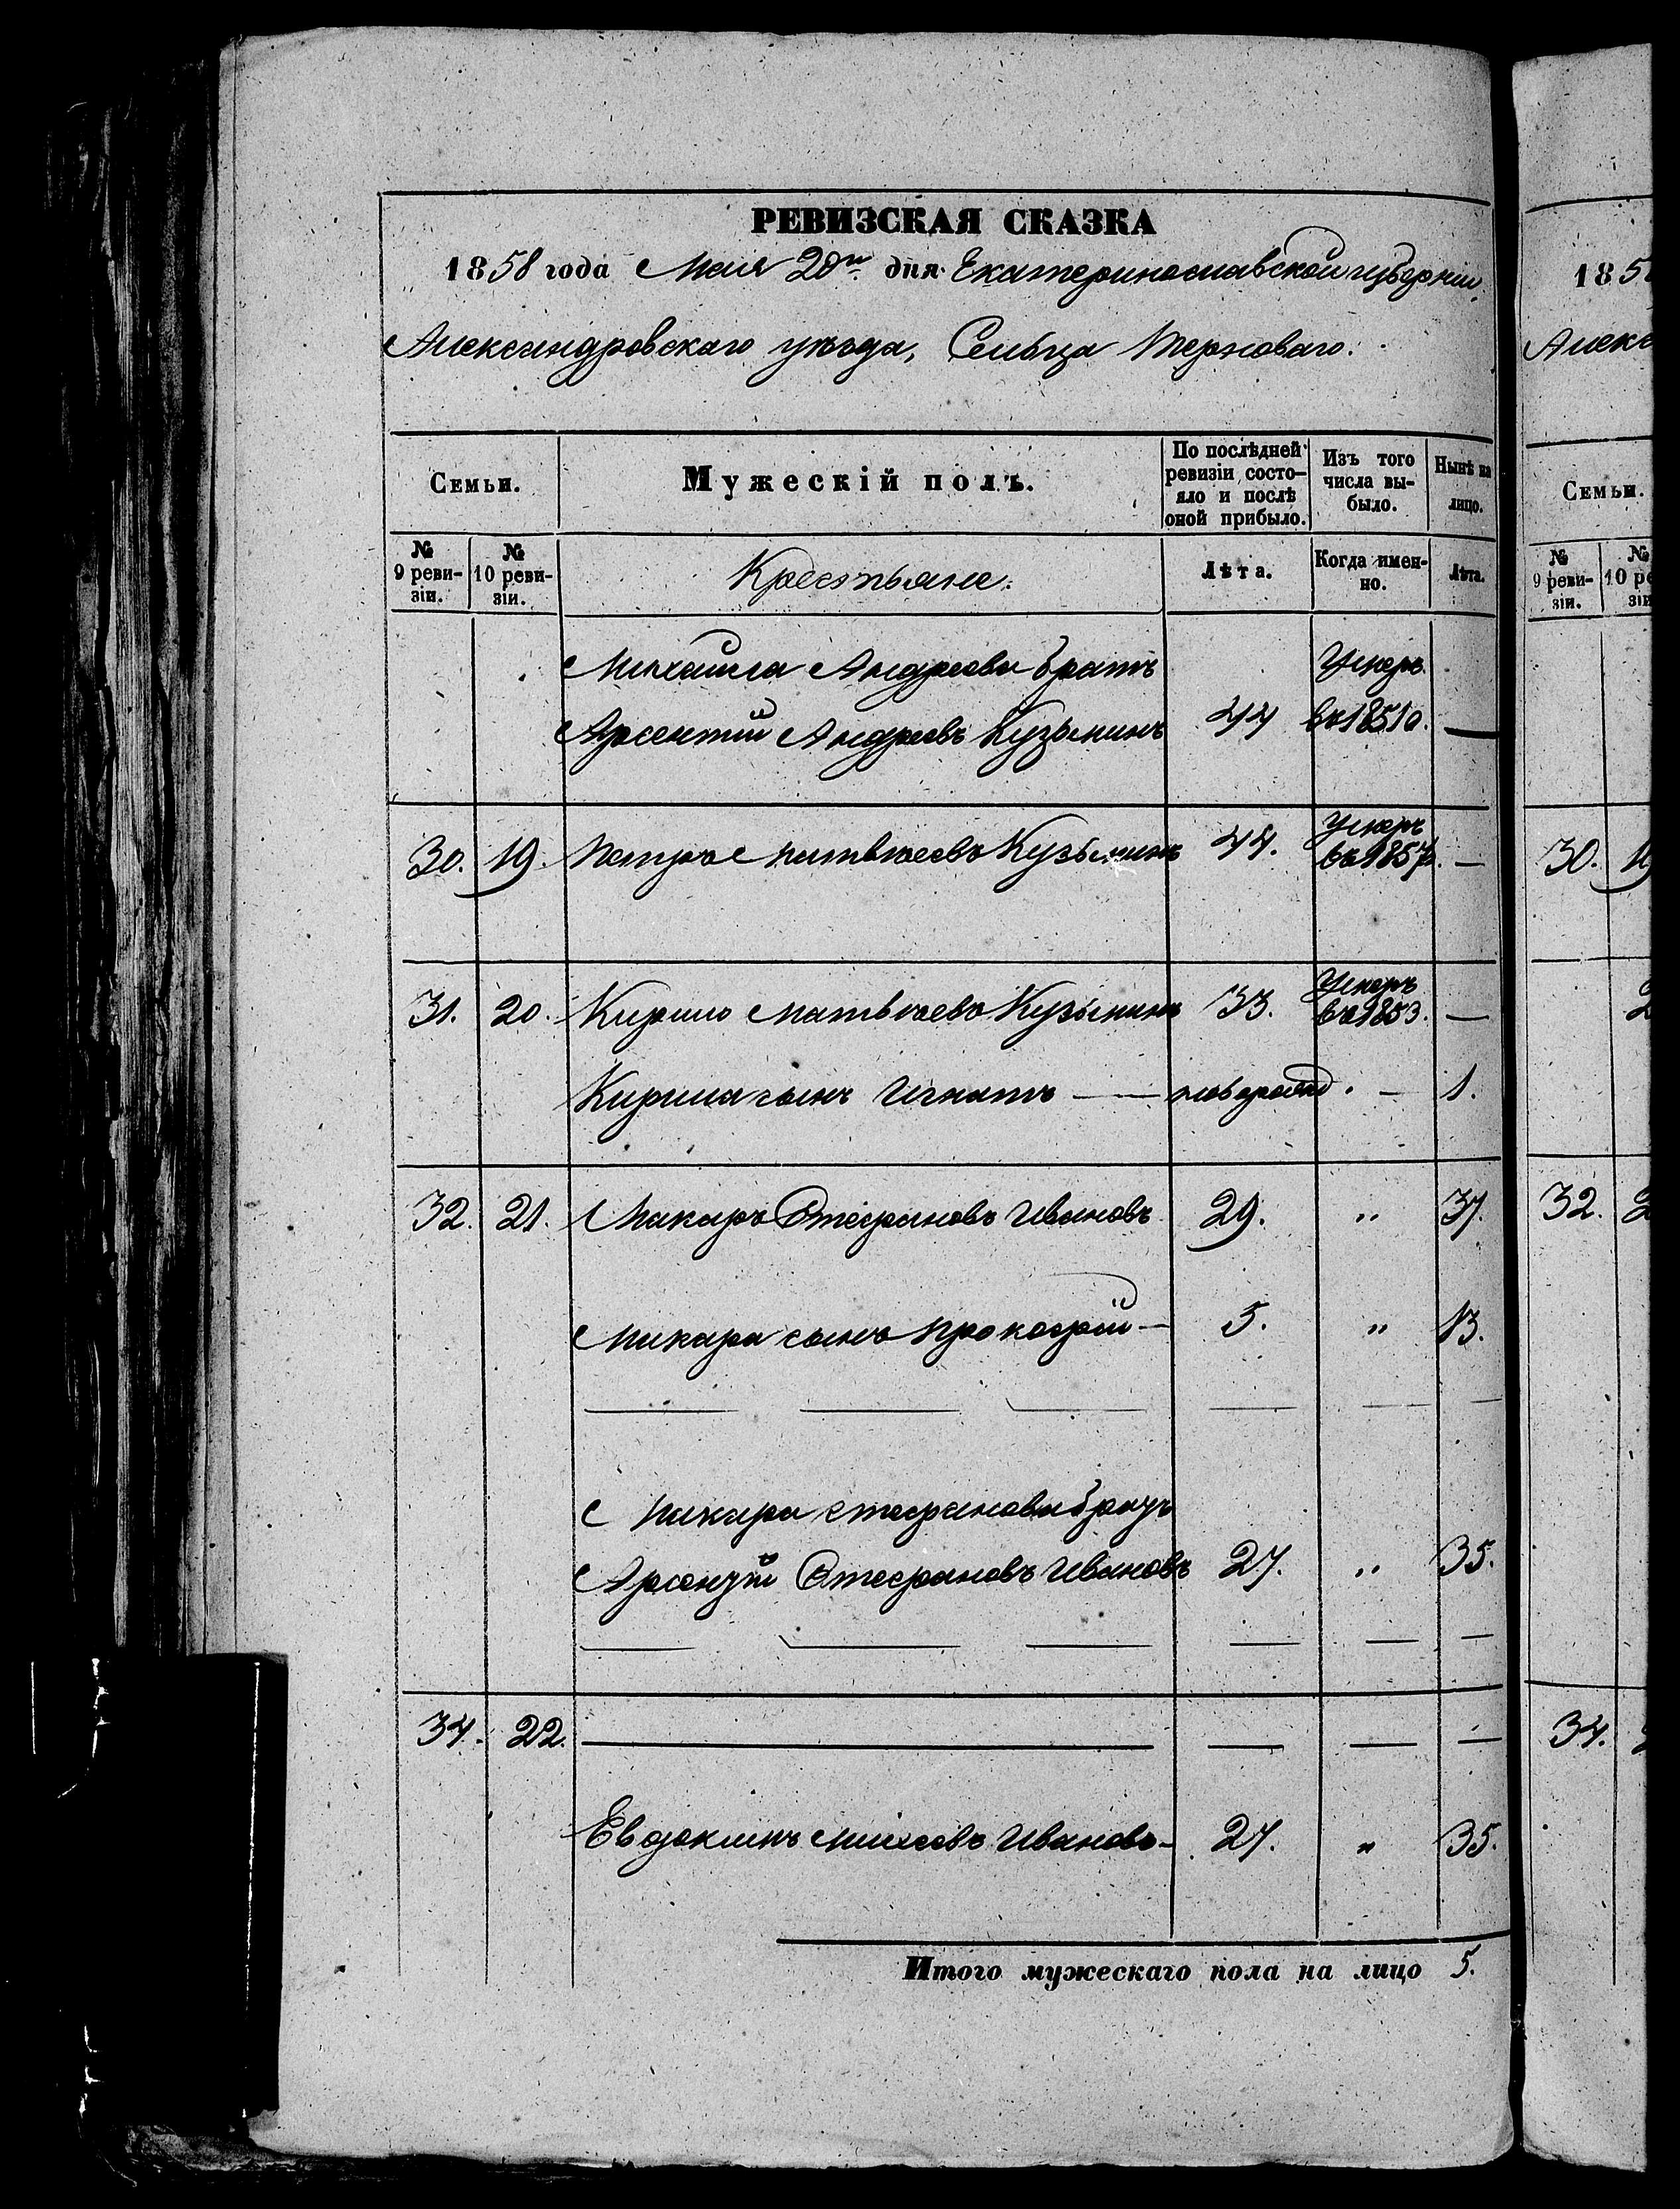 РЕВИЗСКАЯ СКАЗКА
1858 года Мая 20го дня Екатеринославской губернiи,
Александровскаго уѣзда, Сельца Терноваго.
Семьи.
Мужескiй полъ.
По послѣдней ревизiи состо-яло и послѣ оной прибыло.
Изъ того числа вы-было.
Нынѣ на лицо.
№ 9 реви-зiи.
№ 10 реви-зiи.
Крестьяне.
Лѣта.
Когда имен-но.
Лѣта.
Михайла Андреева братъ Умеръ
Арсентий Андреевъ Кузьминъ 44 въ 1851 —
30. 19. Петръ Матвѣевъ Кузьминъ 44. Умеръ въ 1857 —
31. 20. Кирило Матвѣевъ Кузьминъ 33. Умеръ въ 1853. —
Кирила сынъ Игнатъ — — новорожд. — 1.
32. 21. Макаръ Стефановъ Ивановъ 29. " 37.
Макара сынъ Прокофiй — 5. " 13.
Макара Стефанова братъ
Арсентий Стефановъ Ивановъ 27. " 35.
34. 22. — — — —
Евдокимъ Михеевъ Ивановъ — 27. " 35.
Итого мужескаго пола на лицо 5.
185
Алекс
Семьи.
№ 9 реви-зiи.
№ 10 ре
зiи
30. 19
2
32. 2
34. 2